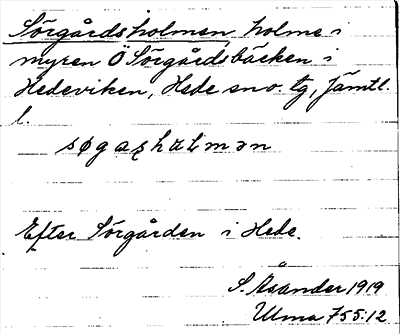 Sörgårdsholmen, holme i
myren Ö Sörgårdsbäcken i
Hedeviken, Hede sn o. tg, Jämtl.
l.
Efter Sörgården i Hede.
S. Åsander 1919
Ulma 755:12